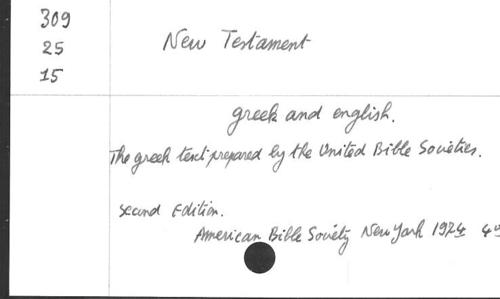 309
25
15
New Testament
greek and english.
The greek text prepared by the United Bible Societies.
Second Edition.
American Bible Society New York 1974 4°